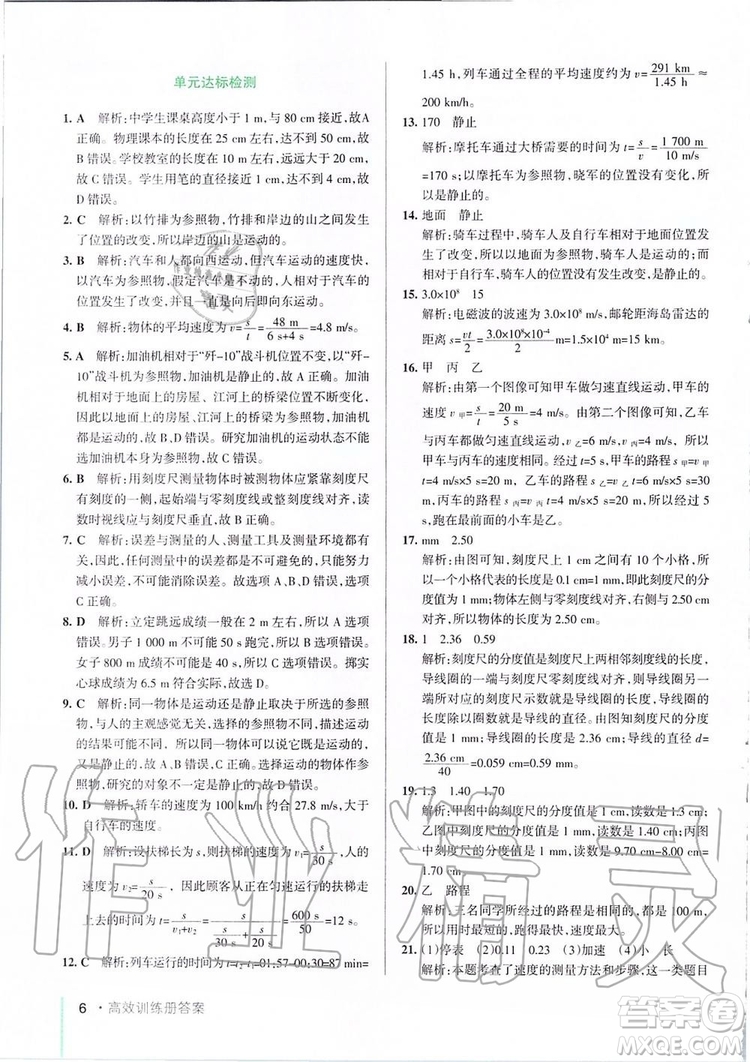 单元达标检测
1. A 解析:中学生课桌高度小于 1 m,与 80 cm 接近,故A
正确。物理课本的长度在 25 cm 左右,达不到 50 cm,故
B 错误。学校教室的长度在 10 m 左右,远远小于 20 cm,
故 C 错误。学生用笔的直径接近 1 cm,故 D 错误。
2. C 解析:以竹排为参照物,因为竹排和岸边的山之间发生
了位置的改变,所以岸边的山是运动的。
3. B 解析:汽车和人都向西运动,但汽车的运动的速度快,
以汽车为参照物,假定汽车不动,人相对于汽车的位置
发生了改变,并且一直向后即向东运动。
4. B 解析:物体的平均速度 v=s/t=48 m/(6 s+4 s)=4.8 m/s。
5. A 解析:加油机相对于“歼-10”战斗机位置不变,以“歼-
10”战斗机为参照物,加油机是静止的,故 A 正确。如果
以地面上的房屋、江河上的桥梁为参照物,加油机都是
运动的,故 B、C 错误。研究加油机的运动状态不能
选加油机本身为参照物,故 D 错误。
6. B 解析:用刻度尺测量物体时被测物体应紧靠刻度尺
有刻度的一侧,起始端与零刻度线或整刻度线对齐,读
数时视线应与刻度尺垂直,故 B 正确。
7. C 解析:误差与测量的人、测量工具及测量环境都有
关,任何测量中的误差都是不可避免的,只能尽努力
减小误差,不可能消除误差。故选项 A、B、D 错误,选项
C 正确。
8. D 解析:立定跳远成绩一般在 2 m 左右,所以 A 选项
错误。男子 1 000 m 不可能 50 s 跑完,所以 B 选项错误。
女子 800 m 成绩不可能为 40 s,所以 C 选项错误。掷实
心球成绩为 6.5 m 有可能,故选项 D 正确。
9. C 解析:同一物体是运动还是静止取决于所选的参照
物,与人的主观感觉无关,选择不同的参照物,描述运动
的结果可能不同,一个物体可以既是运动的,
又是静止的,故 A、B 错误。机械运动中,可以任选参照
物,研究的对象不一定是固体,故 D 错误。
10. D 解析:轿车的速度为 100 km/h 合约 27.8 m/s,大于
自行车的速度。
11. D 解析:设扶梯长为 s,则扶梯的速度为 v₁=s/30 s,人的
速度为 v₂=s/20 s,因此顾客从正在匀速运行的扶梯走
上去的时间为 t=s/(v₁+v₂)=s/(s/30 s+s/20 s)=600 s/50 s=12 s。
12. C 解析:列车运行的时间为 t=01:57-00:30=87 min=
1.45 h,列车通过全程的平均速度约为 v=s/t=291 km/1.45 h≈
200 km/h。
13. 170 静止
解析:摩托车通过大桥需要的时间为 t=s/v=1 700 m/10 m/s
=170 s。以摩托车为参照物,晓军的位置没有变化,所
以是静止的。
14. 地面 静止
解析:骑车过程中,骑车人及自行车相对于地面的位置
发生了改变,所以以地面为参照物,骑车人是运动的。相
对于自行车,骑车人的位置没有发生改变,所以是静止的。
15. 3.0×10⁸ 15
解析:电磁波的速度为 3.0×10⁸ m/s,邮轮距海岛雷达的
距离 s=vt/2=3.0×10⁸ m/s×10⁻⁴ s/2=1.5×10⁴ m=15 km。
16. 甲 丙 乙
解析:由第一个图像可知甲车做匀速直线运动,甲车的
速度 v甲=s/t=20 m/5 s=4 m/s。由第二个图像可知,乙车与
丙车都做匀速直线运动,v乙=6 m/s,v丙=5 m/s,t=5 s,
所以甲车与丙车的路程 s甲=v甲t=4 m/s×5 s=20 m,乙车的路程 s乙=v乙t=6 m/s×5 s=30 m,丙车的路程 s丙=v丙t=5 m/s×5 s=25 m。所以,5 s
后,跑在最前面的小车是乙。
17. mm 2.50
解析:由图可知,刻度尺上 1 cm 之间有 10 个小格,所以
一个小格代表的长度是 0.1 cm=1 mm,即此刻度尺的分
度值为 1 mm;物体左侧与零刻度线对齐,右侧与 2.50 cm
对齐,所以物体的长度为 2.50 cm。
18. 1 2.36 0.59
解析:刻度尺的分度值是两相邻刻度线的长度,
导线圈的一端与刻度尺零刻度线对齐,所以导线圈的另
一端对应的刻度尺示数就是导线圈的长度,导线圈的长
度除以圈数就是导线的直径,用导线的直径乘
以圈数就是导线圈的长度。导线的直径 d=
2.36 cm/40=0.059 cm=0.59 mm。
19. 1.3 1.40 1.70
解析:甲图中的刻度尺的分度值是 1 cm,读数是 1.3 cm;
乙图中刻度尺的分度值是 1 mm,读数是 1.40 cm;丙图
中刻度尺的分度值是 1 mm,读数是 9.70 cm-8.00 cm=
1.70 cm。
20. 乙 路程
解析:三名同学所走的路程是一定的,所用的时间越短,
速度越大。
21. (1)停表 (2)0.11 0.23 (3)加速 (4)小 长
解析:本题考查了速度的测量方法和步骤,这一类题目
6·高效训练册答案
作业精灵
答案圈
MXQE.COM